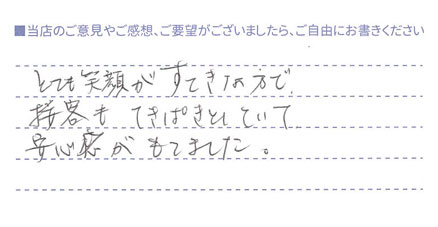 ■当店のご意見やご感想、ご要望がございましたら、ご自由にお書きください
とても笑顔がすてきな方で、
接客もてきぱきとしていて
安心感がもてました。